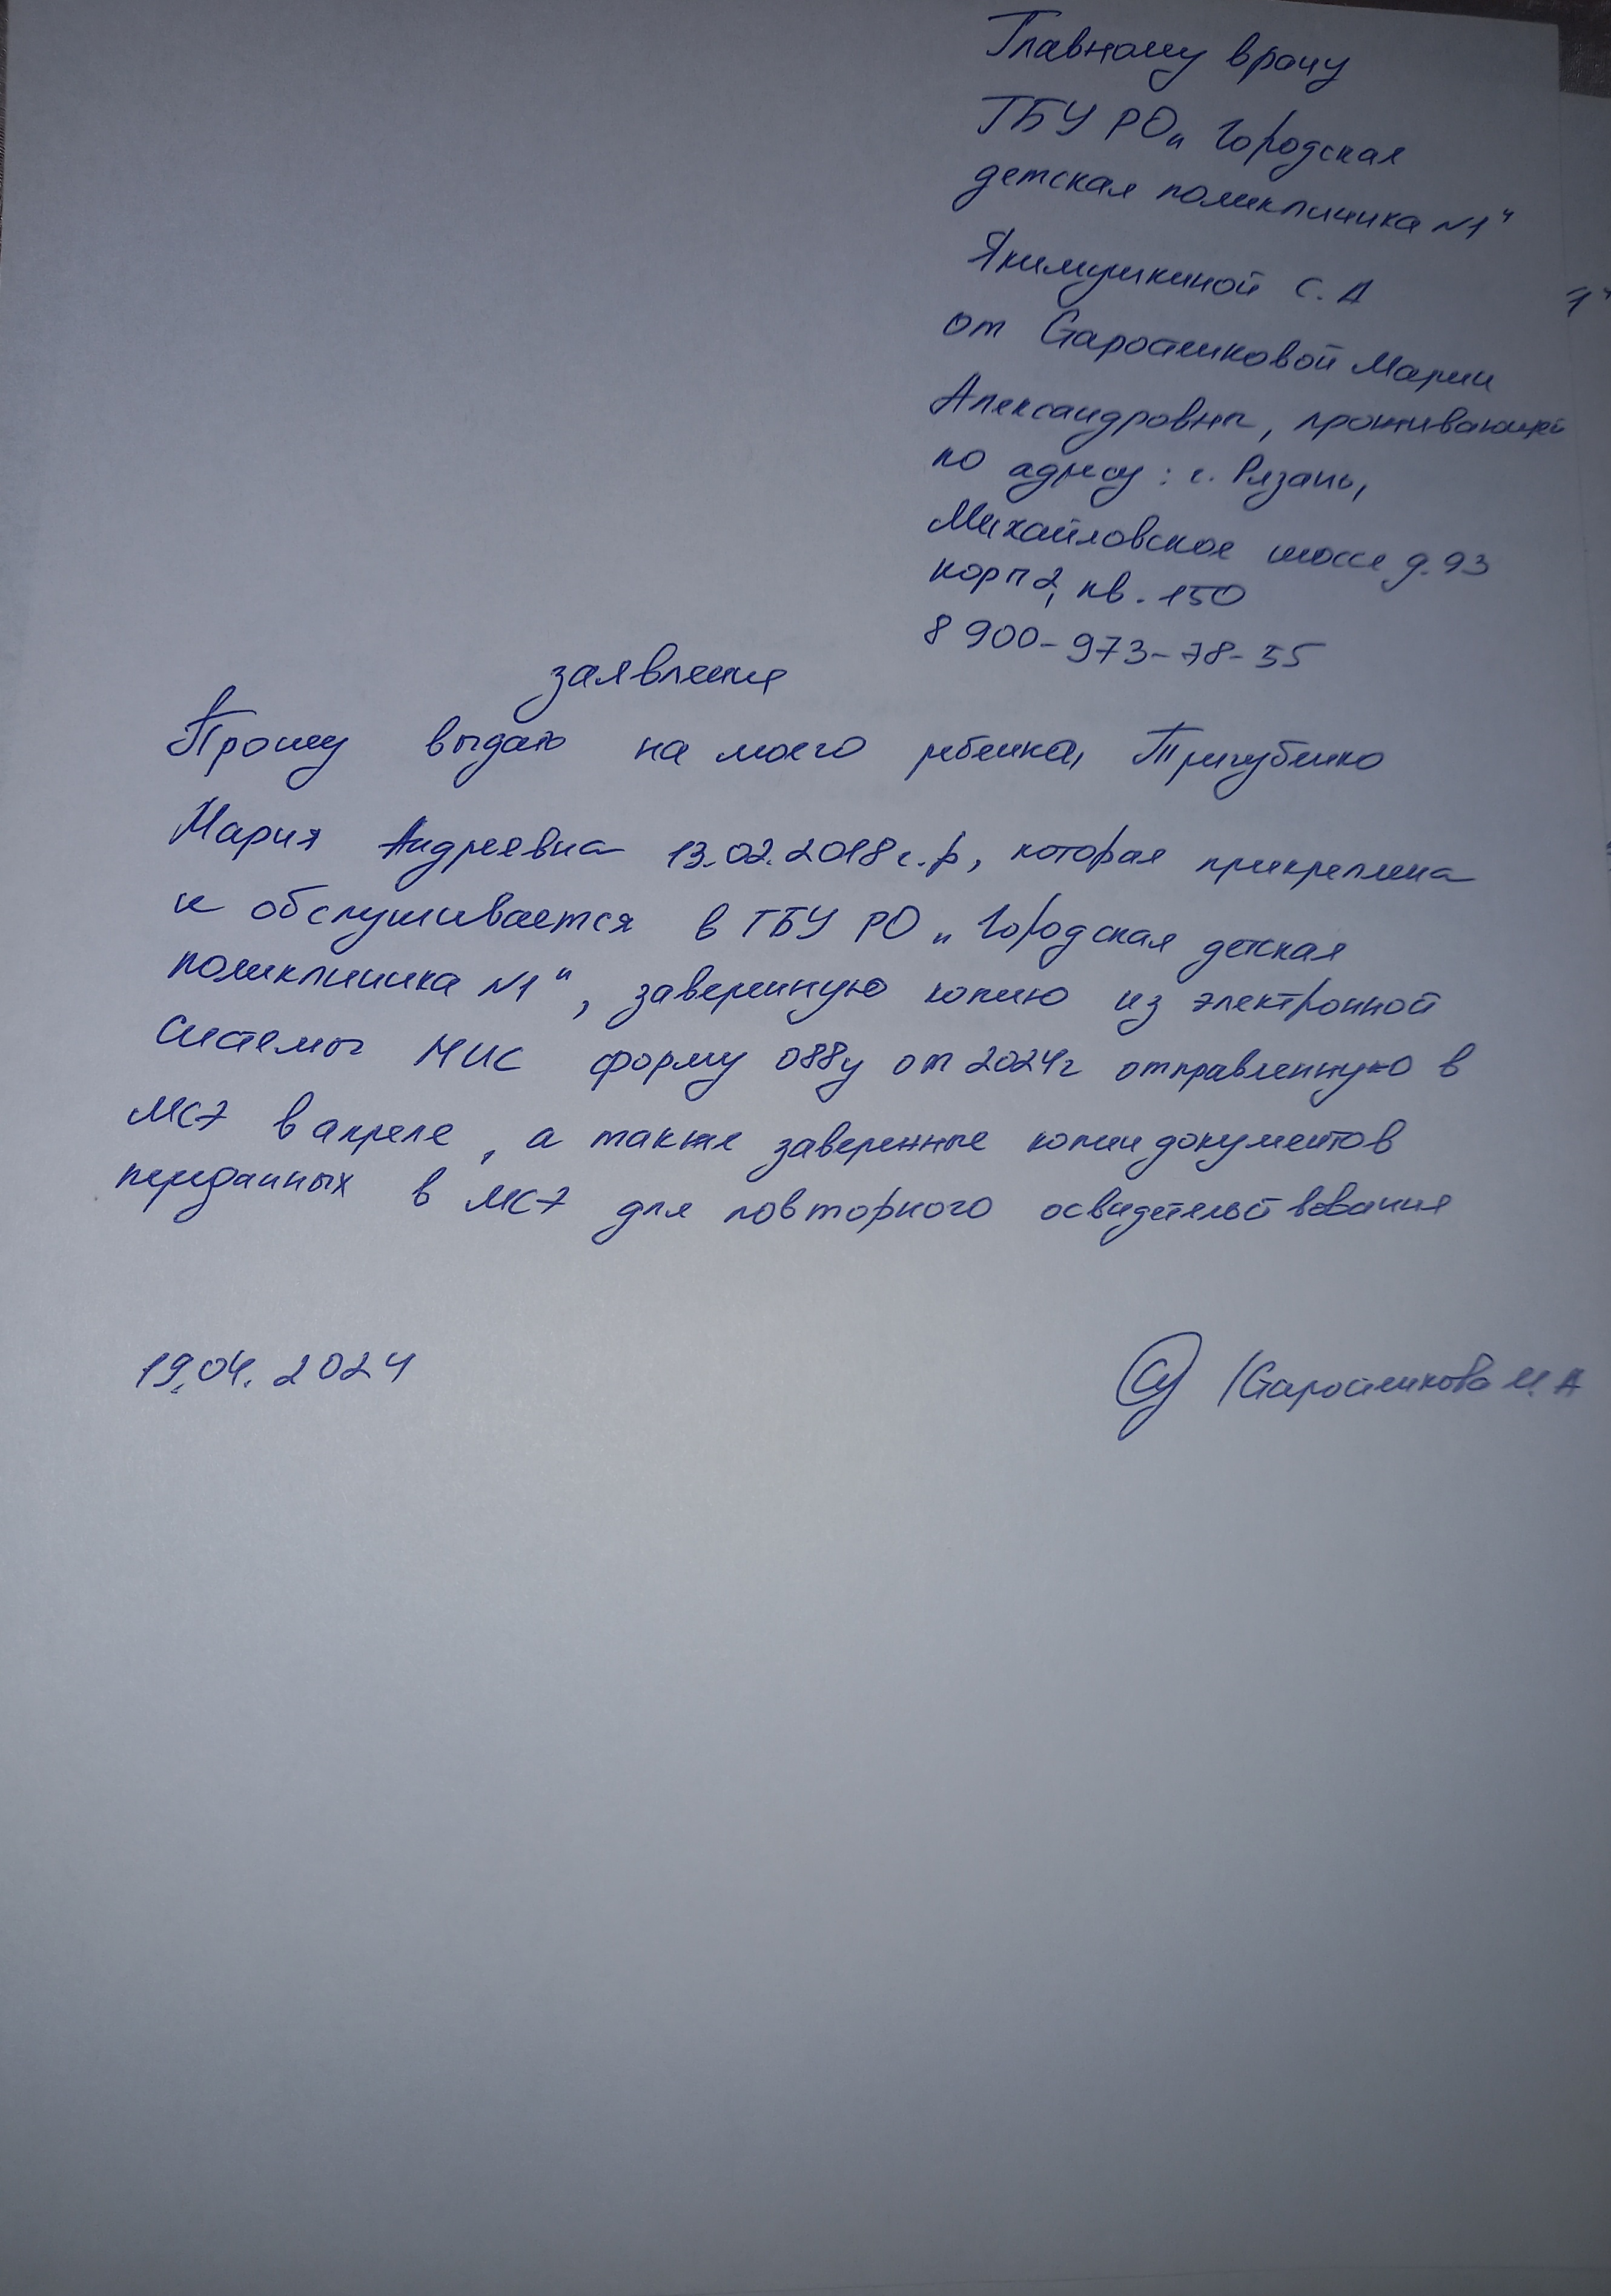 Главному врачу
ГБУ РО „Городская
детская поликлиника №1"
Якимушкиной С. А
от Старостиковой Марии
Александровны, проживающей
по адресу: г. Рязань,
Михайловское шоссе д. 93
корп 2, кв. 150
8 900-973-78-35
заявление
Прошу выдать на моего ребенка, Тригубенко
Мария Андреевна 13.02.2018 г.р, которая прикреплена
и обслуживается в ГБУ РО „Городская детская
поликлиника №1", завериную копию из электронной
системы МИС форму 088у от 2024г отправленную в
МСЭ в апреле, а также заверенные копии документов
переданных в МСЭ для повторного освидетельствования
19.04.2024
/Старостикова М. А